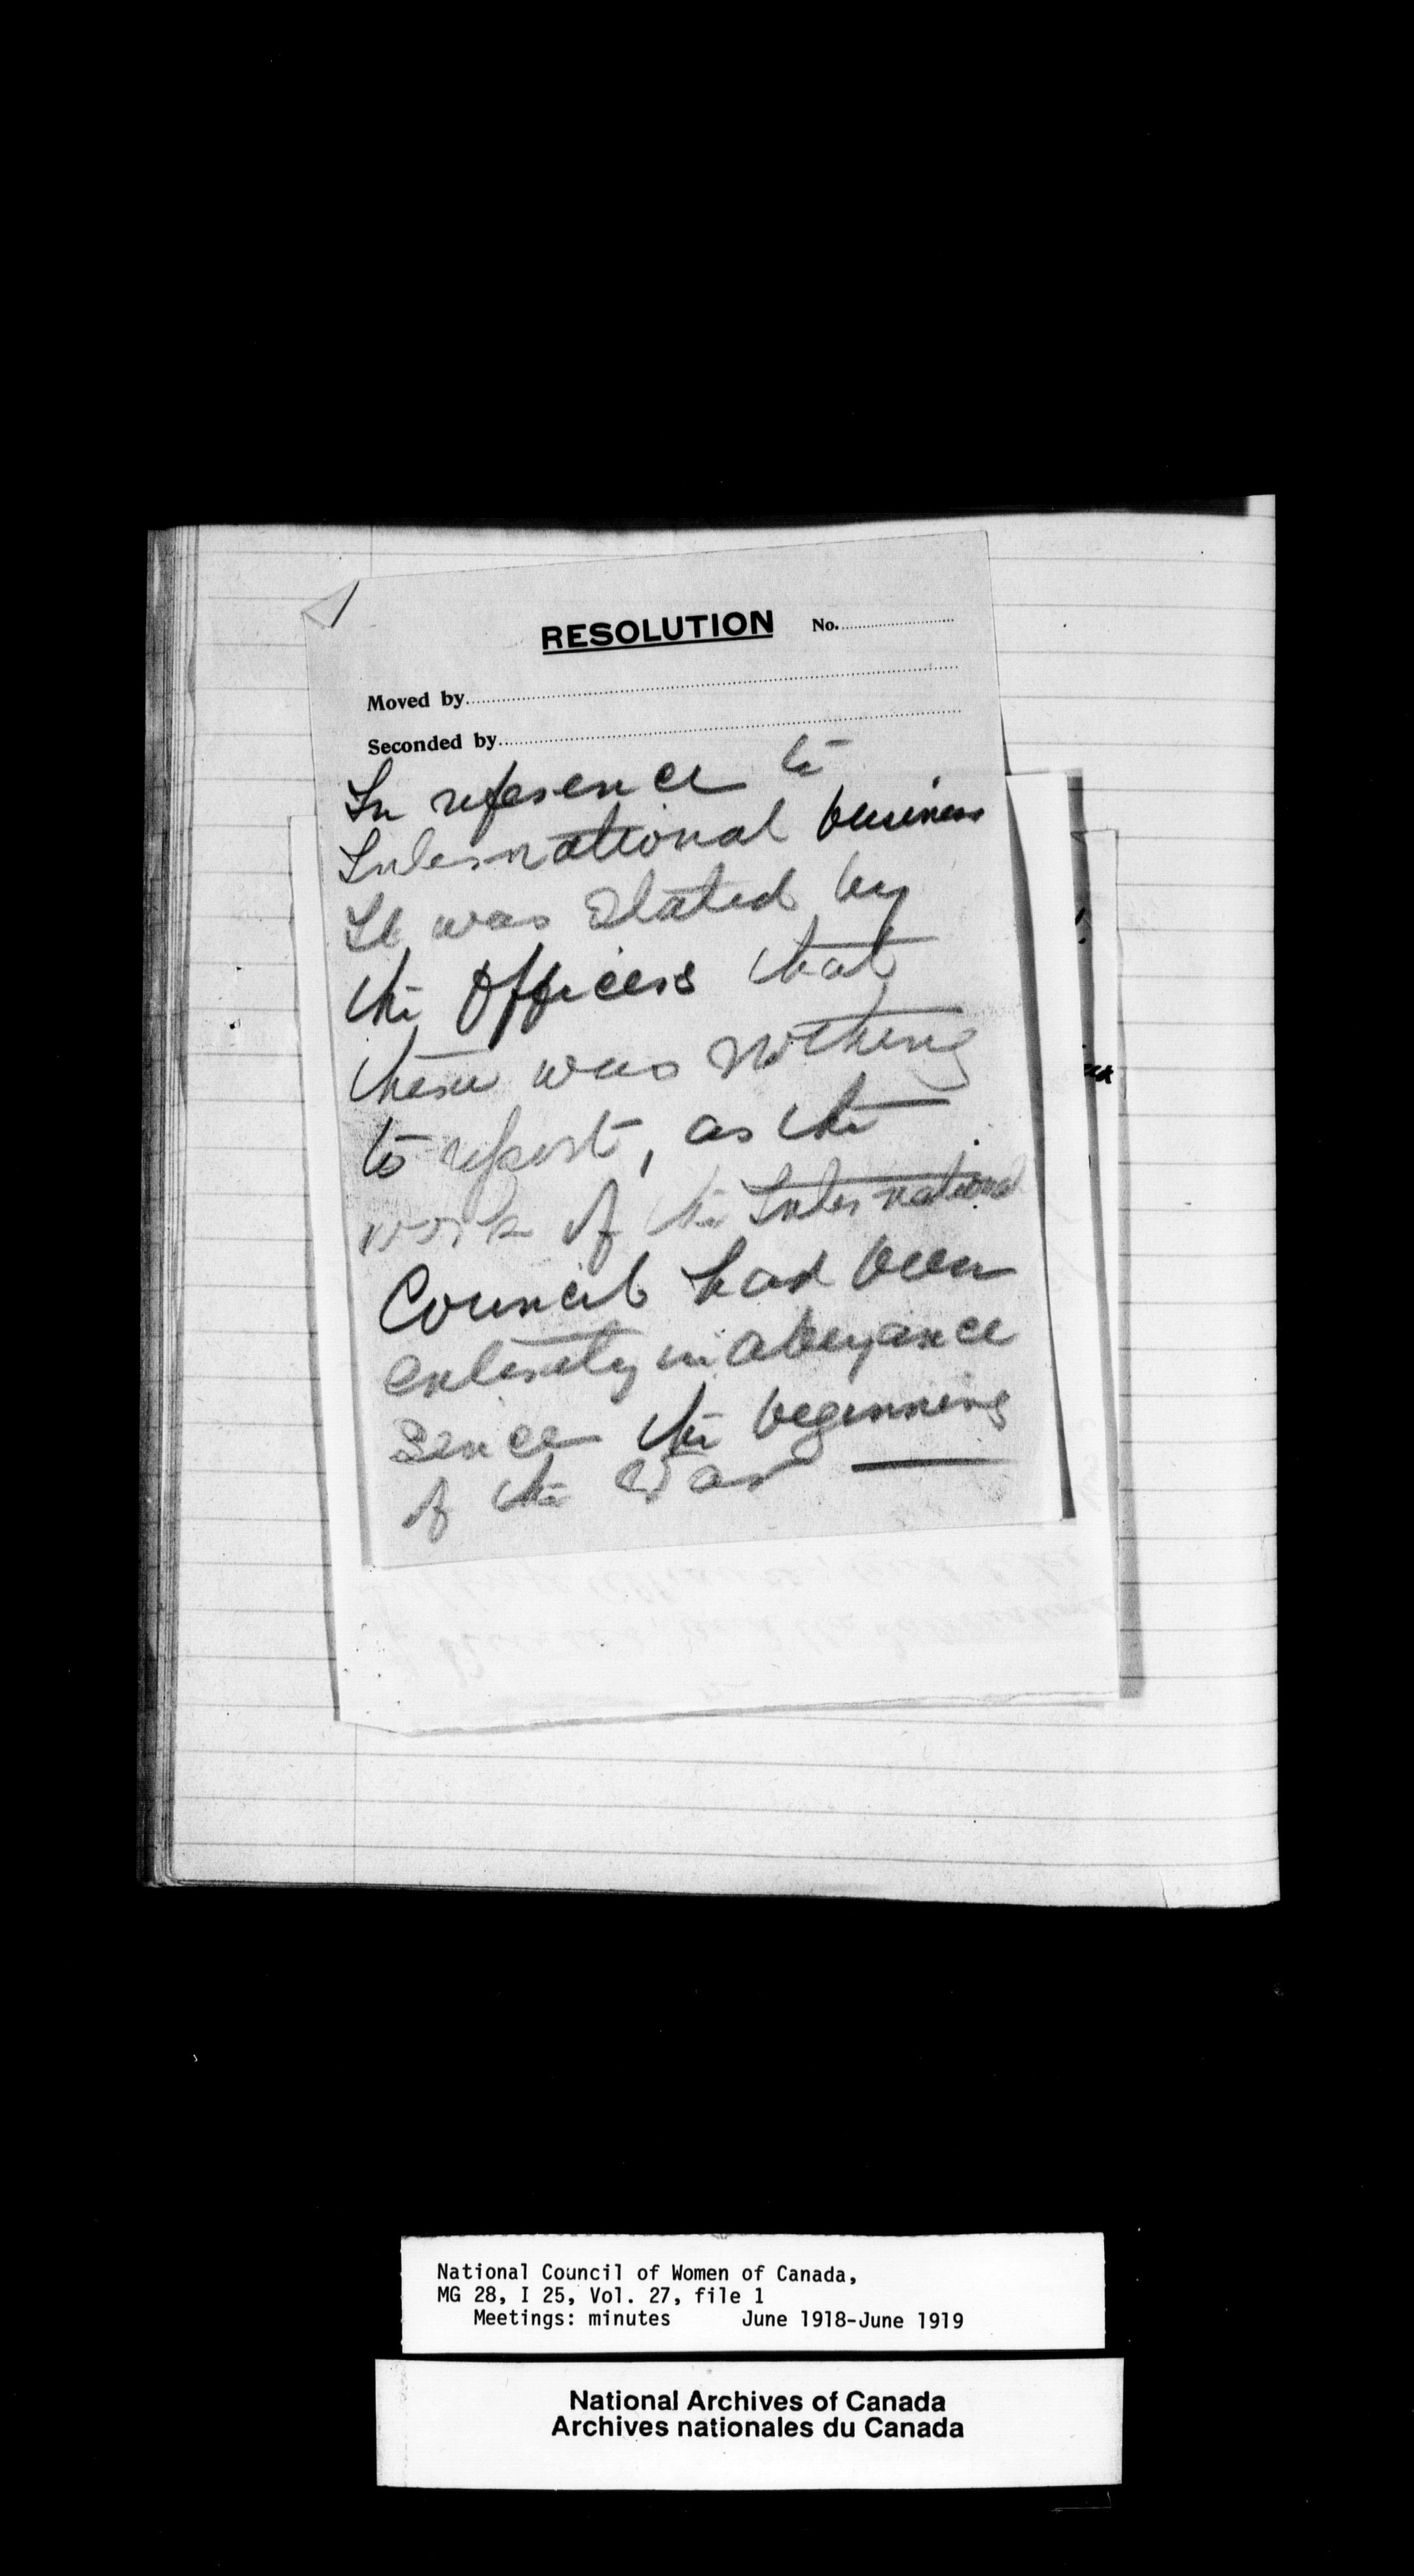 RESOLUTION No.
Moved by
Seconded by
In reference to
International business
It was stated by
the Officers that
there was nothing
to report, as the
work of the International
Council had been
entirely in abeyance
since the beginning
of the War
National Council of Women of Canada,
MG 28, I 25, Vol. 27, file 1
Meetings: minutes June 1918-June 1919
National Archives of Canada
Archives nationales du Canada